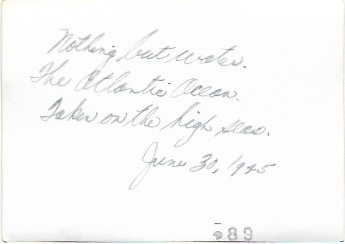 Nothing but water.
The Atlantic Ocean.
Taken on the high seas.
June 30, 1945
589